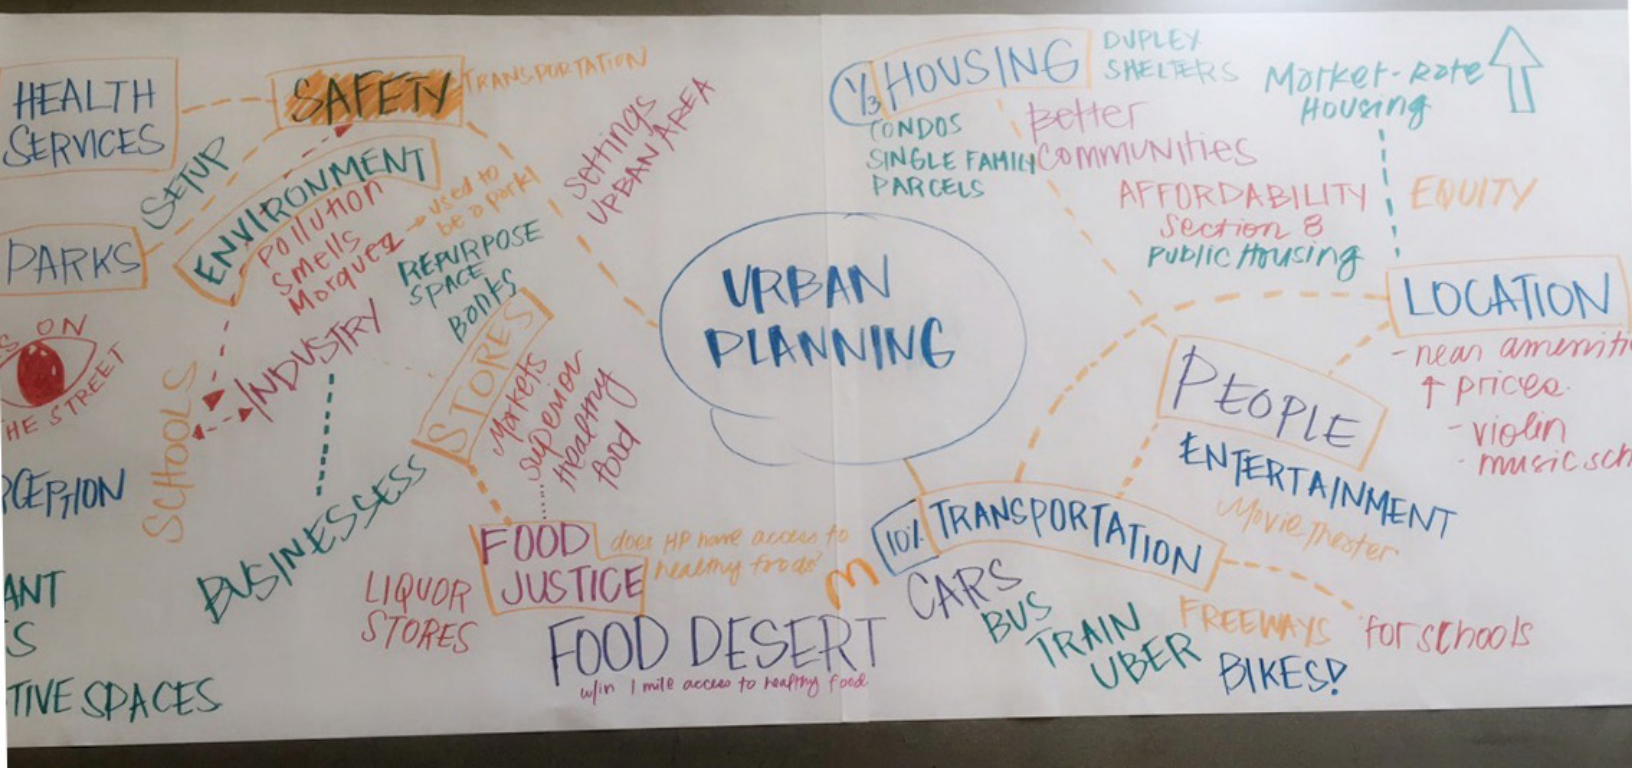 HEALTH
SERVICES
SAFETY
TRANSPORTATION
SETUP
ENVIRONMENT
Pollution
Smells
Morquez
used to
be a park!
PARKS
REPURPOSE
SPACE
Banks
Settings
URBAN AREA
S ON
HE STREET
INDUSTRY
SCHOOLS
STORES
Markets
superior
Healthy
food
CEPTION
BUSINESSES
LIQUOR
STORES
FOOD
JUSTICE
does HP have access to
healthy foods?
FOOD DESERT
w/in 1 mile access to healthy food
ANT
S
TIVE SPACES
URBAN
PLANNING
1/3 HOUSING
DUPLEX
SHELTERS
CONDOS
SINGLE FAMILY
PARCELS
Better
Communities
Market-Rate
Housing
AFFORDABILITY
Section 8
Public Housing
EQUITY
LOCATION
- near ameniti
↑ prices
- violin
- music sch
PEOPLE
ENTERTAINMENT
Movie theater
10% TRANSPORTATION
CARS
BUS
TRAIN
UBER
FREEWAYS
BIKES!
for schools